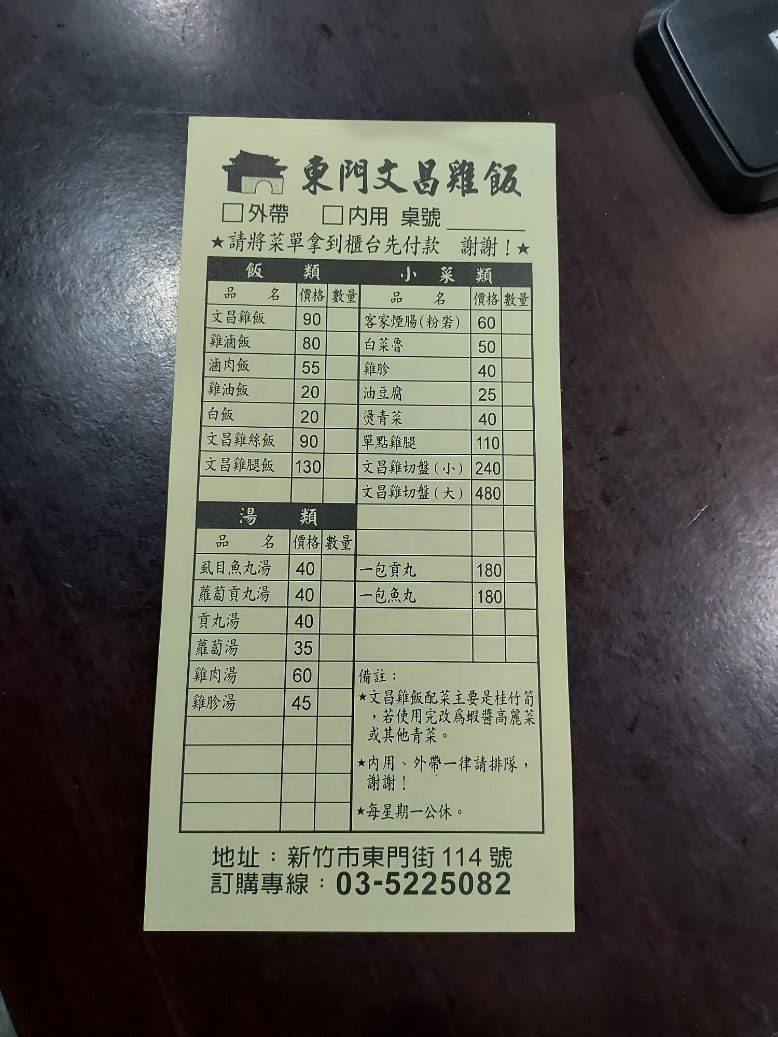 東門文昌雞飯
□外帶 □內用 桌號
★請將菜單拿到櫃台先付款 謝謝！★
飯 類
品 名 價格 數量
文昌雞飯 90
雞滷飯 80
滷肉飯 55
雞油飯 20
白飯 20
文昌雞絲飯 90
文昌雞腿飯 130
湯 類
品 名 價格 數量
虱目魚丸湯 40
蘿蔔貢丸湯 40
貢丸湯 40
蘿蔔湯 35
雞肉湯 60
雞胗湯 45
小 菜 類
品 名 價格 數量
客家煙腸(粉沯) 60
白菜魯 50
雞胗 40
油豆腐 25
燙青菜 40
單點雞腿 110
文昌雞切盤(小) 240
文昌雞切盤(大) 480
一包貢丸 180
一包魚丸 180
備註：
★文昌雞飯配菜主要是桂竹筍
，若使用完改為蝦醬高麗菜
或其他青菜。
★內用、外帶一律請排隊，
謝謝！
★每星期一公休。
地址：新竹市東門街 114 號
訂購專線：03-5225082